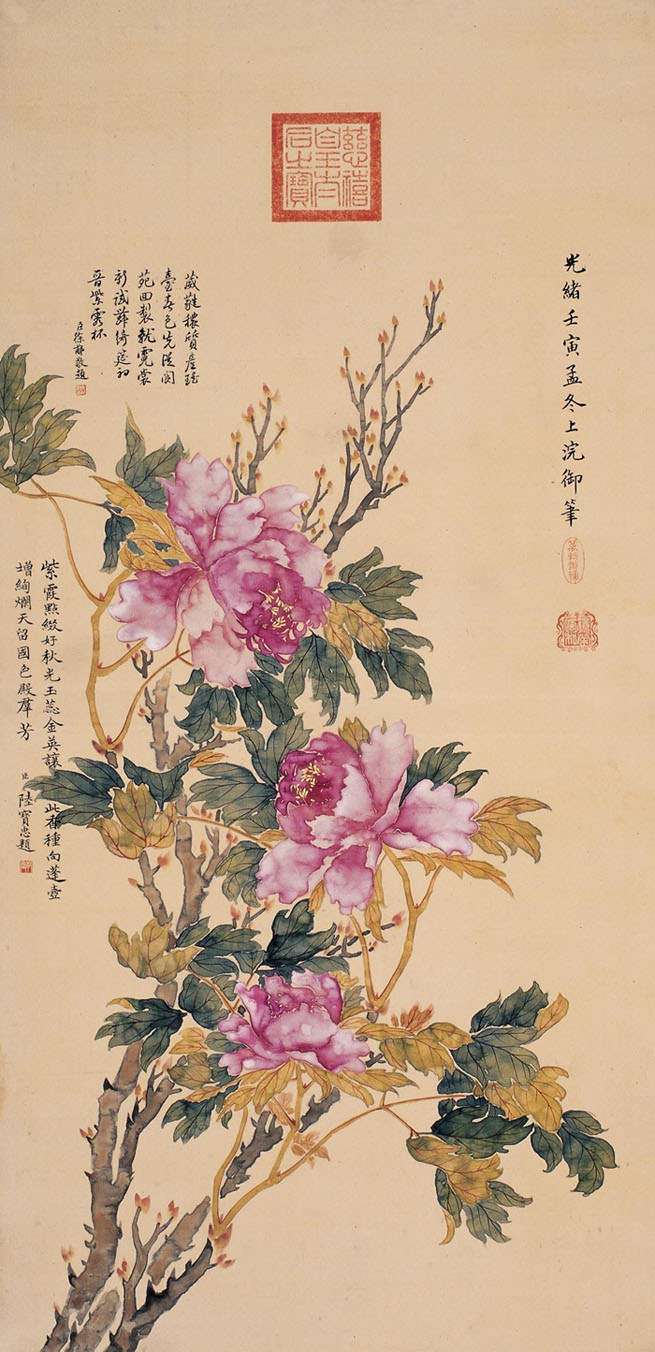 慈禧
皇太
后之寶
光緒壬寅孟冬上浣御筆
葳蕤穠質產瑤
臺春色先從閬
苑回製就霓裳
新試舞綺筵初
晉紫霞杯
臣徐郙敬題
紫霞點綴好秋光玉蕊金英讓此香種向蓬壺
增絢爛天留國色殿羣芳
臣陸寶忠題